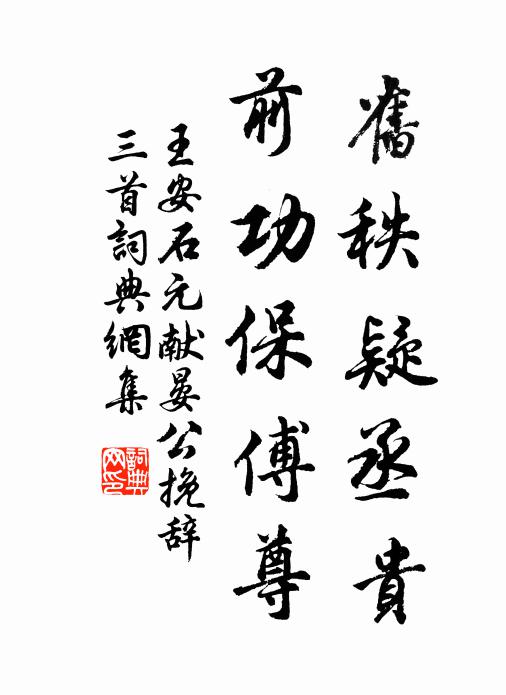 舊秩疑丞貴
前功保傅尊
王安石元献晏公挽辞
三首詞典網集
詞典
网印